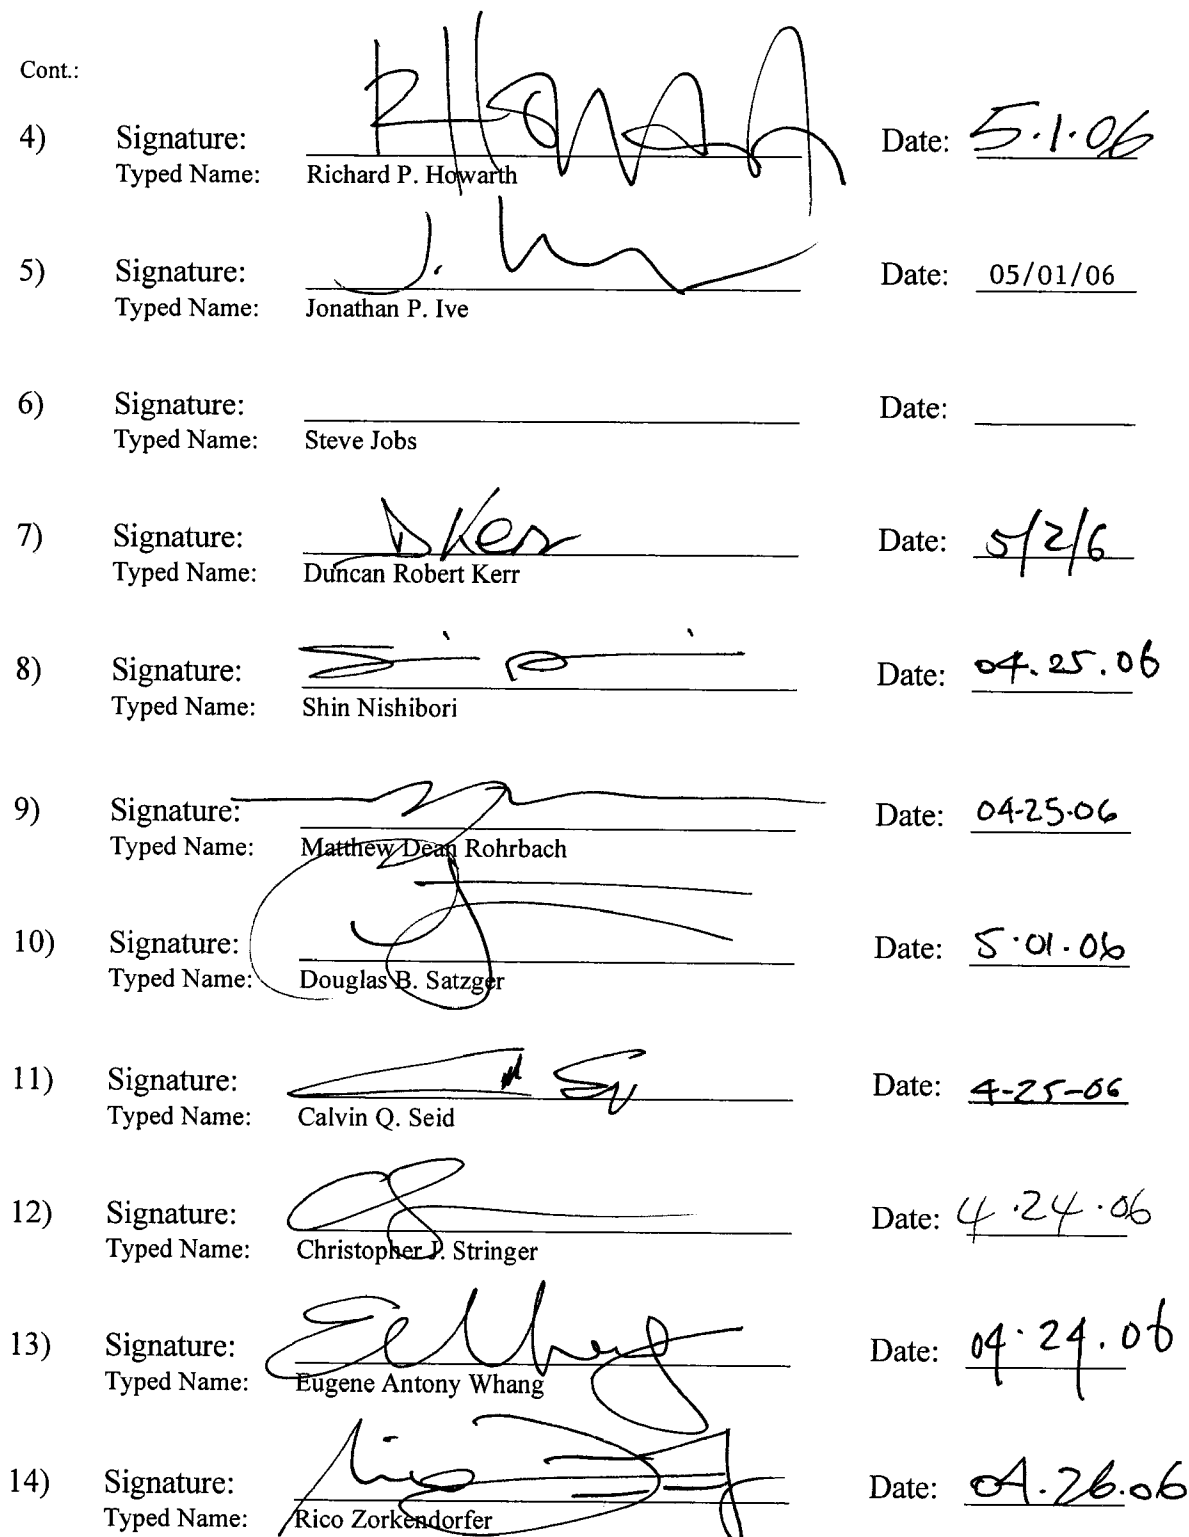 Cont.:
4) Signature: R Howarth Date: 5.1.06
Typed Name: Richard P. Howarth
5) Signature: J. Date: 05/01/06
Typed Name: Jonathan P. Ive
6) Signature: Date:
Typed Name: Steve Jobs
7) Signature: D Kerr Date: 5/2/6
Typed Name: Duncan Robert Kerr
8) Signature: Date: 04.25.06
Typed Name: Shin Nishibori
9) Signature: Date: 04-25-06
Typed Name: Matthew Dean Rohrbach
10) Signature: Date: 5.01.06
Typed Name: Douglas B. Satzger
11) Signature: Date: 4-25-06
Typed Name: Calvin Q. Seid
12) Signature: Date: 4.24.06
Typed Name: Christopher J. Stringer
13) Signature: Date: 04.24.06
Typed Name: Eugene Antony Whang
14) Signature: Date: 04.26.06
Typed Name: Rico Zorkendorfer